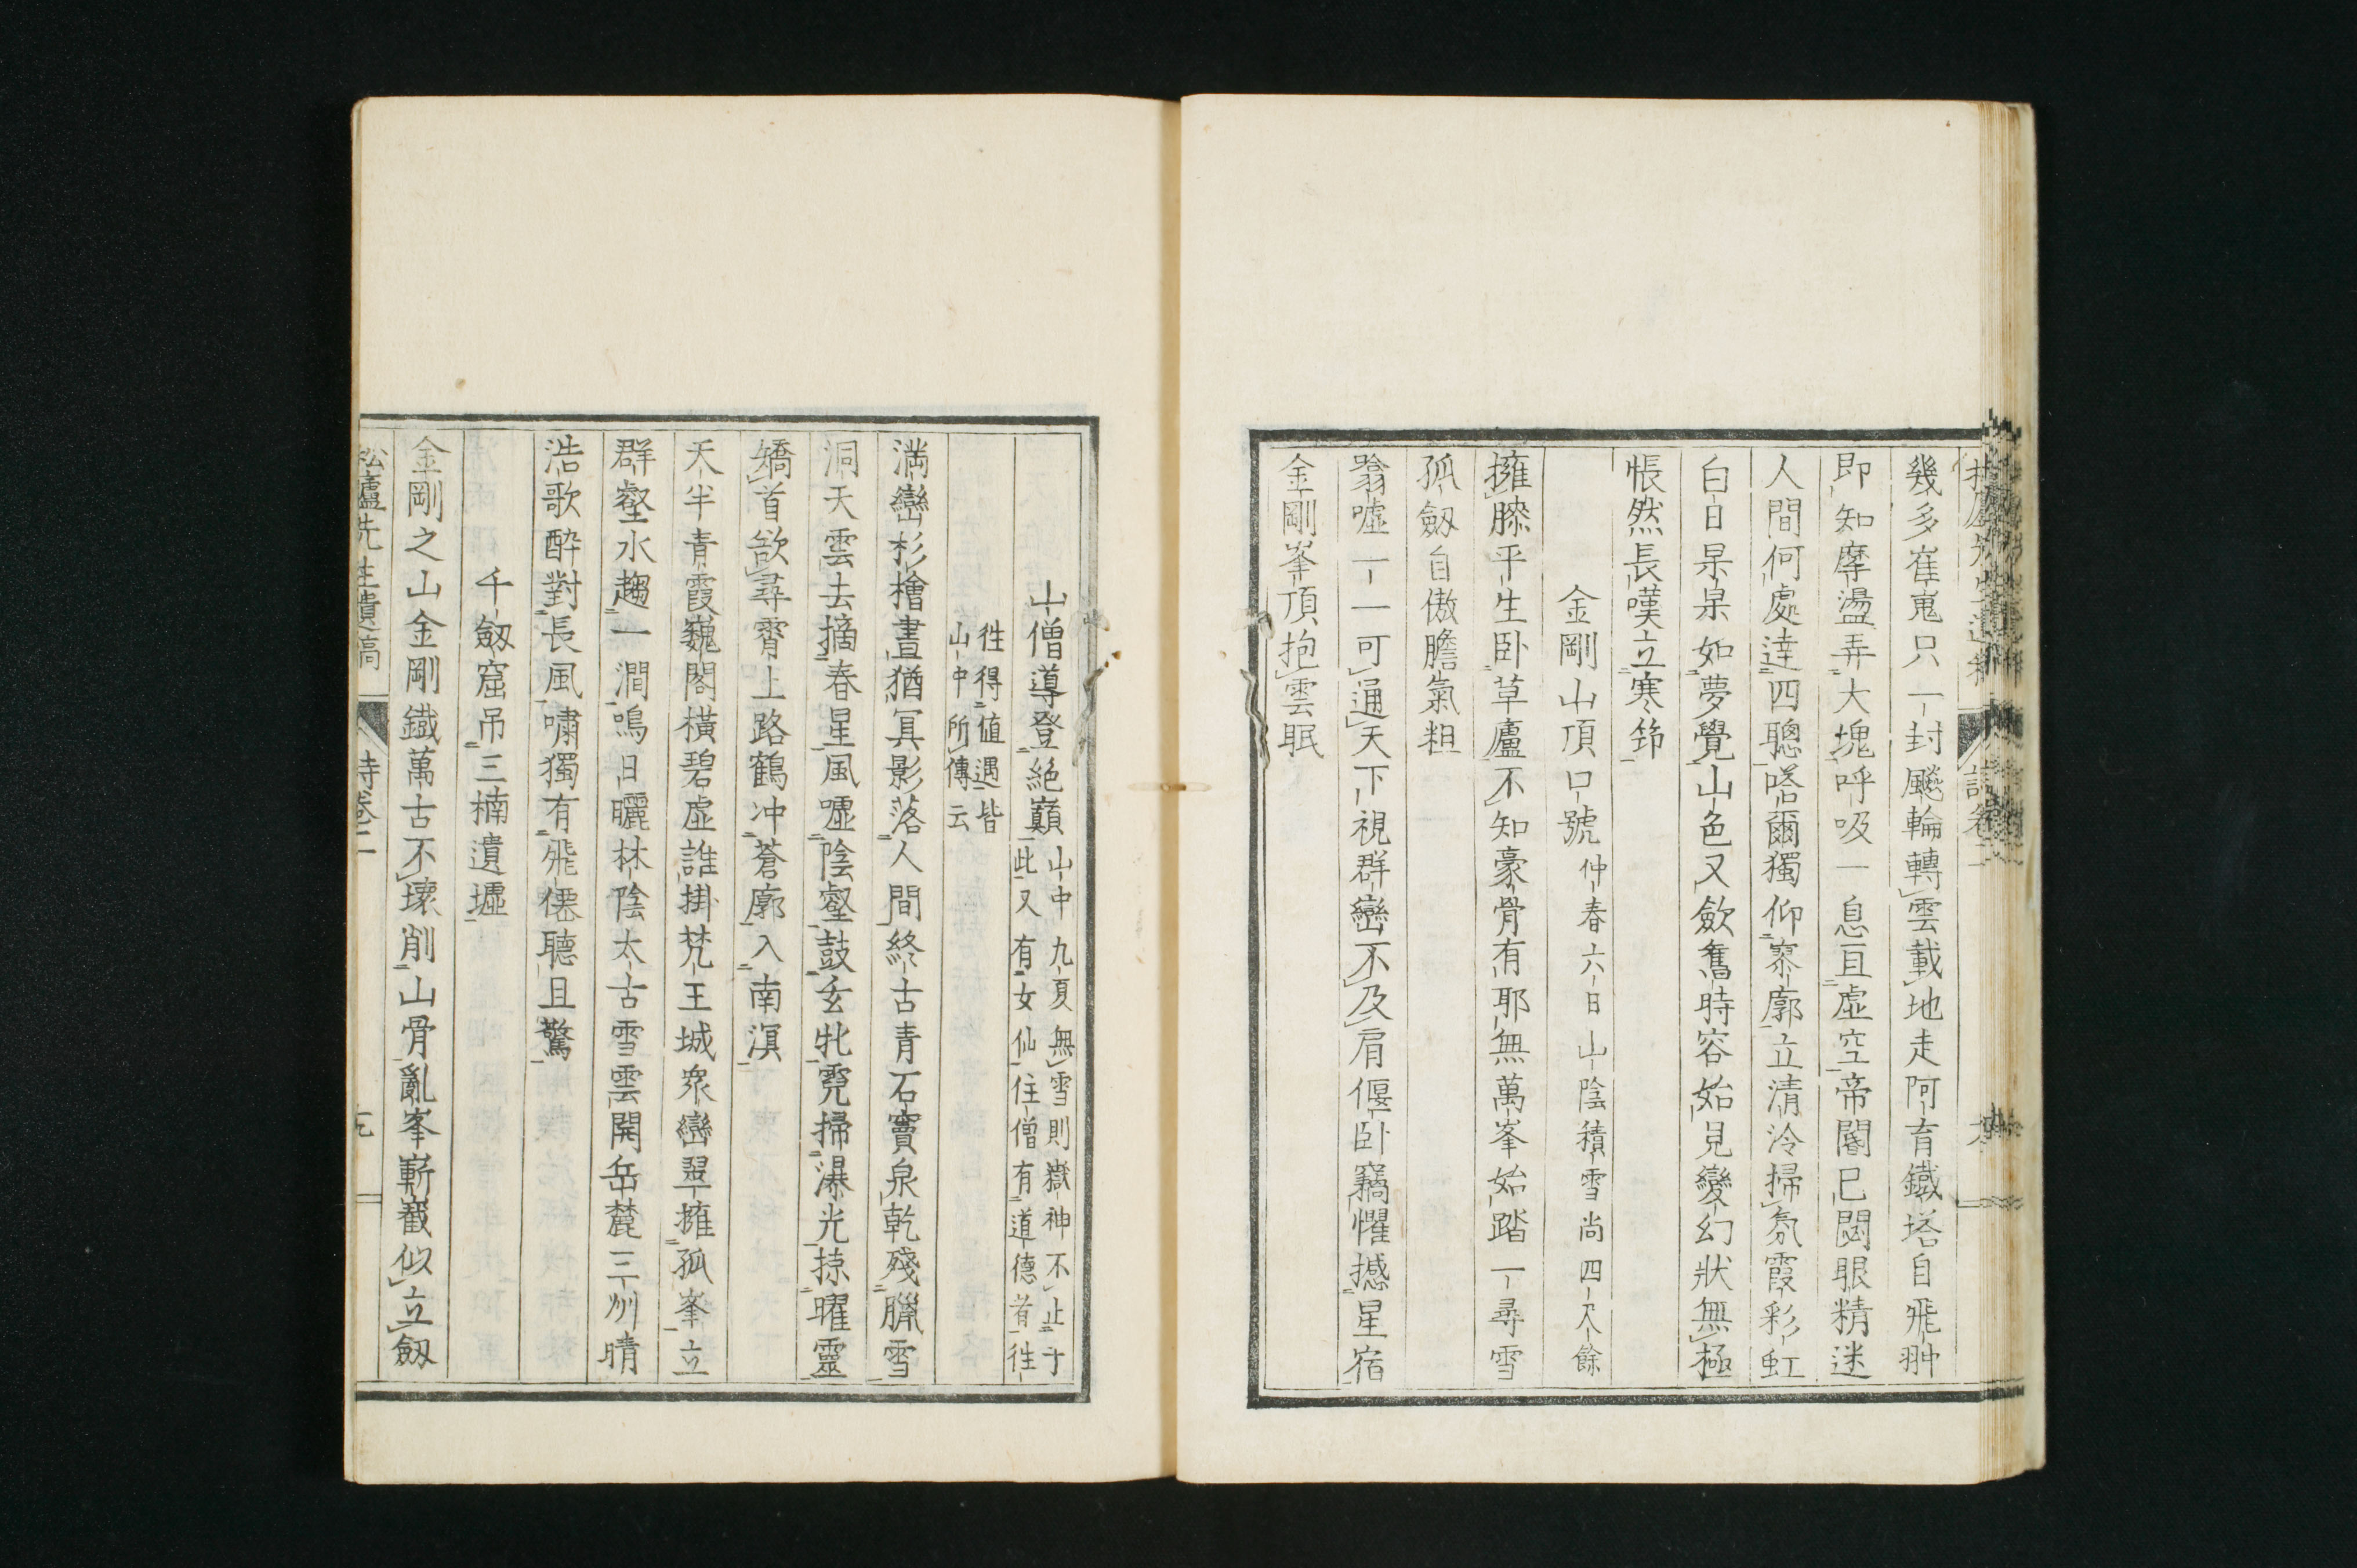 幾多崔嵬只一封颷輪轉雲載地走阿育鐵塔自飛翀
即知摩盪弄大塊呼吸一息亘虛空帝閽已閟眼精迷
人間何處達四聰嗒爾獨仰寥廓立清泠掃氛霞彩虹
白日杲杲如夢覺山色又歛舊時容始見變幻狀無極
悵然長嘆立寒筇
金剛山頂口號
仲春六日山陰積雪尚四尺餘
擁膝平生卧草廬不知豪骨有耶無萬峯始踏一尋雪
孤劒自傲膽氣粗
翕噓一一可通天下視群巒不及肩偃卧竊懼撼星宿
金剛峯頂抱雲眠
山僧導登絶巔
山中九夏無雪則嶽神不止于
此又有女仙住僧有道德者徃
徃得值遇皆
山中所傳云
滿巒杉檜晝猶冥影落人間終古青石竇泉乾殘臘雪
洞天雲去摘春星風噓陰壑鼓玄牝霓掃瀑光掠曜靈
矯首欲尋霄上路鶴冲蒼廓入南溟
天半青霞巍閣橫碧虛誰掛梵王城衆巒翠擁孤峯立
群壑水趨一澗鳴日曬林陰太古雪雲開岳麓三州晴
浩歌醉對長風嘯獨有飛僊聽且驚
千劒窟吊三楠遺墟
金剛之山金剛鐵萬古不壞削山骨亂峯嶄巀似立劒
松廬先生遺稿
詩卷二